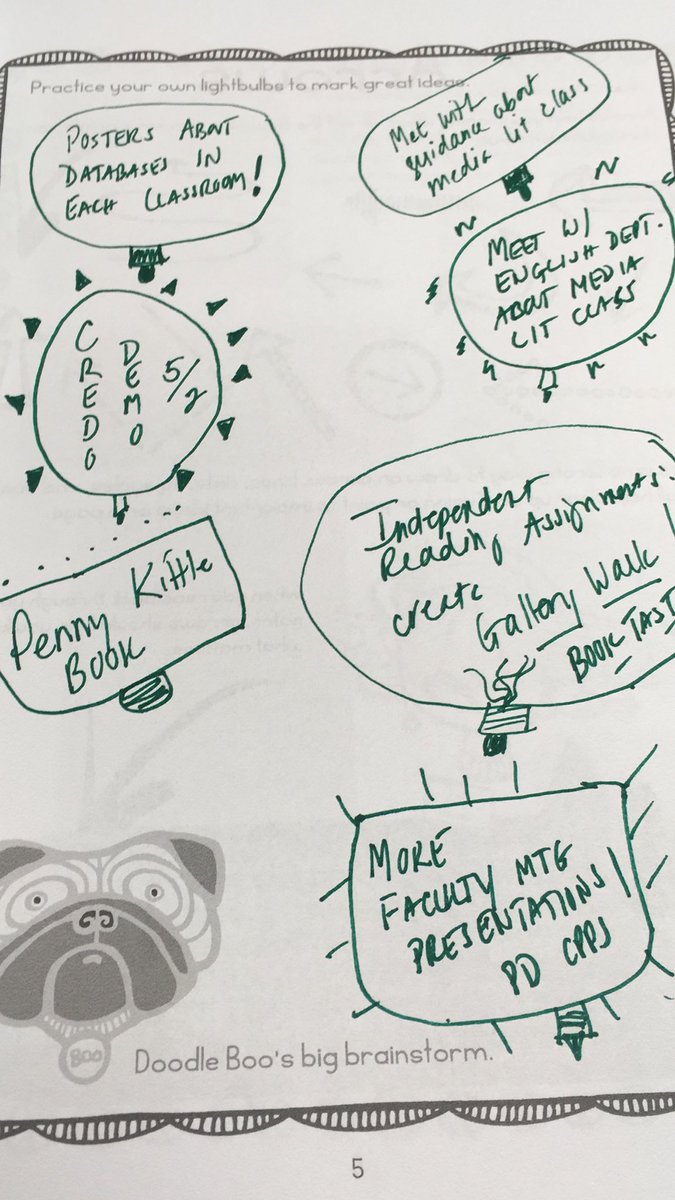 Practice your own lightbulbs to mark great ideas.
POSTERS ABOUT
DATABASES IN
EACH CLASSROOM!
Met with
guidance about
media lit class
MEET W/
ENGLISH DEPT.
ABOUT MEDIA
LIT CLASS
CREDO
DEMO
5/2
Penny Kittle
BOOK
Independent
Reading Assignments:
create
Gallery Walk/
BOOK TAST
MORE
FACULTY MTG
PRESENTATIONS/
PD OPPS
BOO
Doodle Boo's big brainstorm.
5